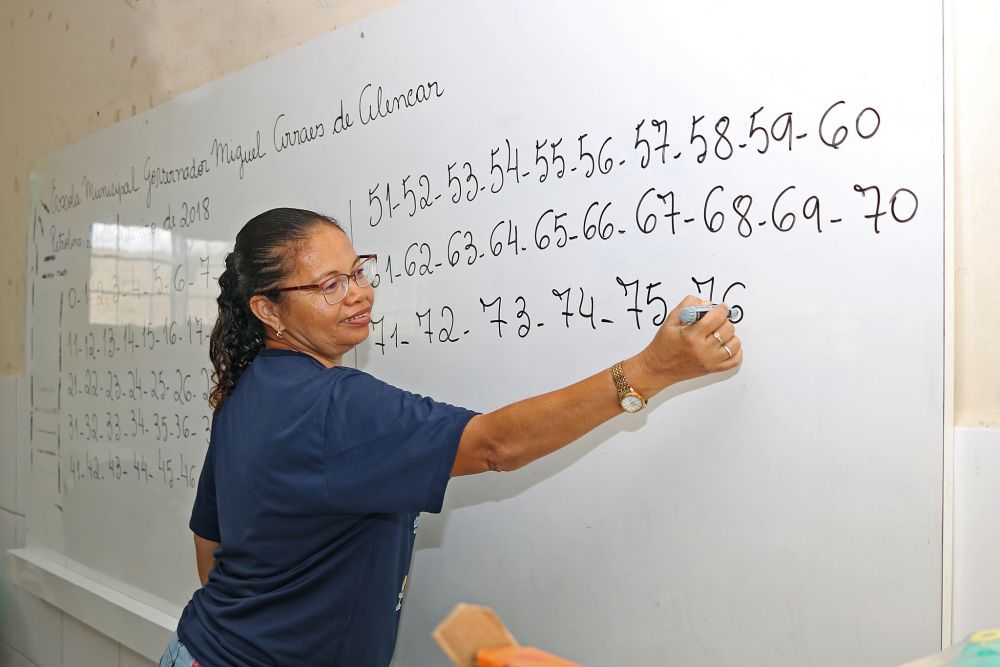 Escola Municipal Governador Miguel Arraes de Alencar
Petrolina, de 2018
0-1-2-3-4-5-6-7-
11-12-13-14-15-16-17-
21-22-23-24-25-26-2
31-32-33-34-35-36-3
41-42-43-44-45-46
51-52-53-54-55-56-57-58-59-60
61-62-63-64-65-66-67-68-69-70
71-72-73-74-75-76